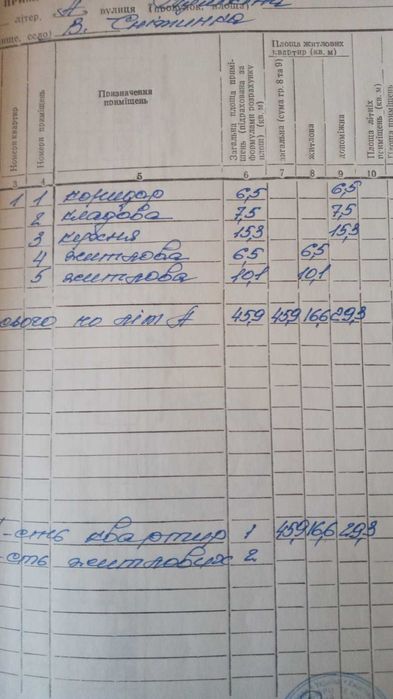 літер. А вулиця (провулок, площа)
В. Снітинка
Номери квартир
Номери приміщень
Призначення приміщень
Загальна площа приміщень (підрахована за формулами розрахунку площ) (кв. м)
Площа житлових квартир (кв. м)
загальна (сума гр. 8 та 9)
житлова
допоміжна
Площа літніх приміщень (кв. м)
3 4 5 6 7 8 9 10
1 1 коридор 6,5 6,5
2 кладова 7,5 7,5
3 кухня 15,3 15,3
4 житлова 6,5 6,5
5 житлова 10,1 10,1
ього по літ А 45,9 45,9 16,6 29,3
-сть квартир 1 45,9 16,6 29,3
-сть житлових 2